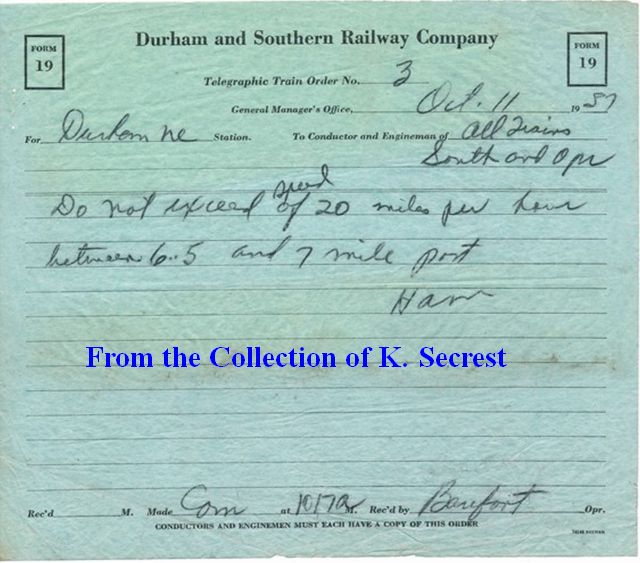 FORM 19
Durham and Southern Railway Company
FORM 19
Telegraphic Train Order No. 3
General Manager's Office, Oct. 11 1957
For Durham NC Station. To Conductor and Engineman of All Trains
South and Opr
speed
Do not exceed of 20 miles per hour
between 6.5 and 7 mile post
From the Collection of K. Secrest
Rec'd M. Made Com at 1017a M. Rec'd by Barefort Opr.
CONDUCTORS AND ENGINEMEN MUST EACH HAVE A COPY OF THIS ORDER